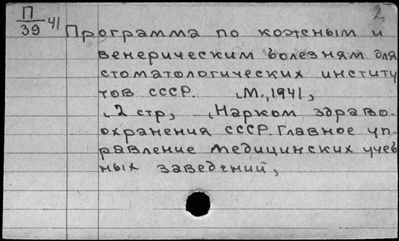 П
39 41
2
Программа по кожным и
венерическим болезням для
стоматологических институ
тов СССР. М., 1941,
2 стр, Нарком здраво-
охранения СССР. Главное уп-
равление медицинских учеб
ных заведений,